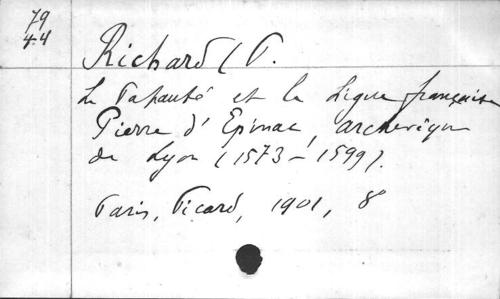 79
44
Richard (P.
La Papauté et la Ligue française
Pierre d'Epinac, archevêque
de Lyon (1573-1599).
Paris, Picard, 1901, 8